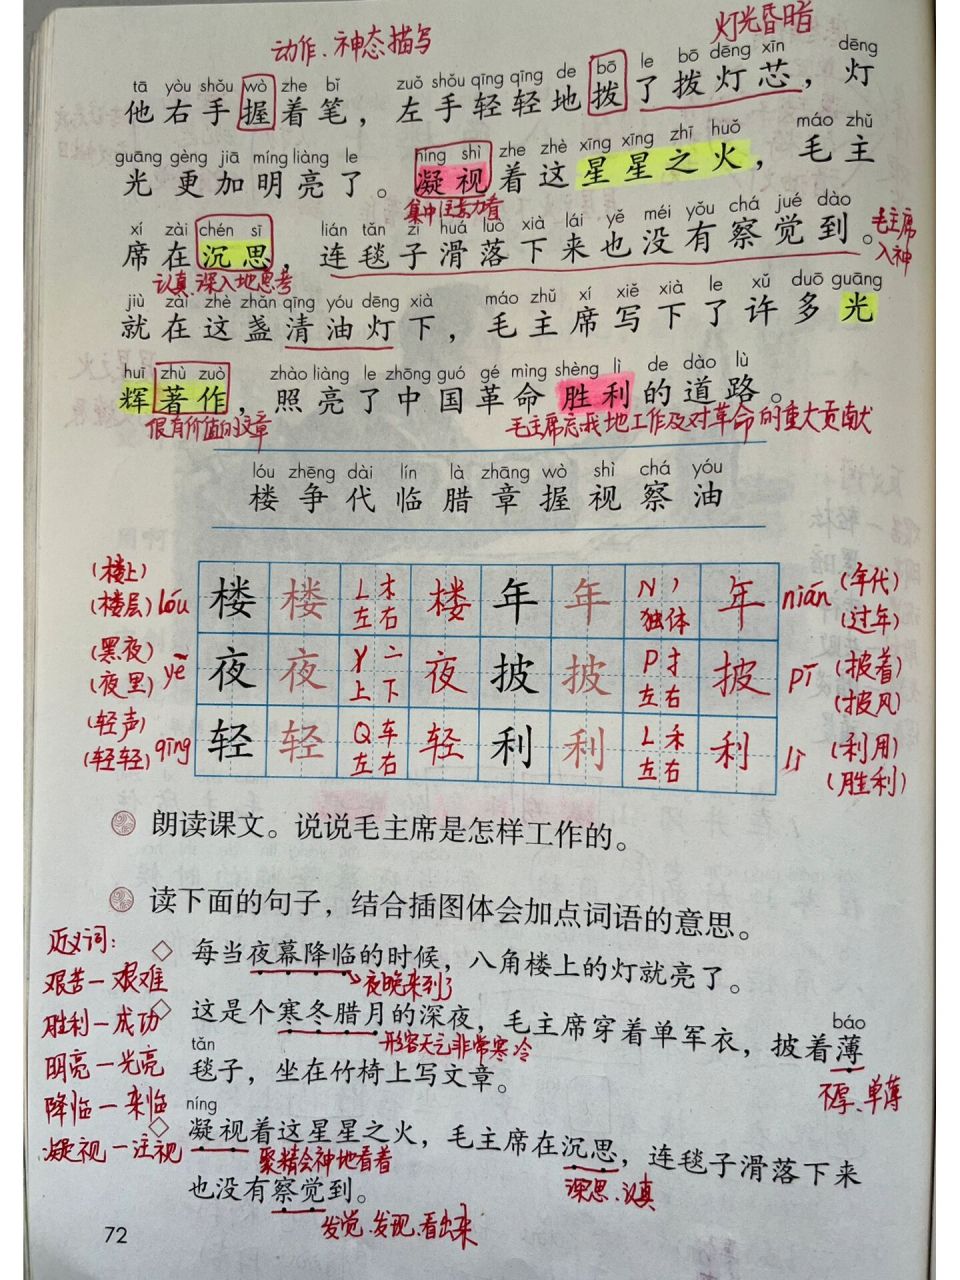 动作、神态描写
灯光昏暗
tā yòu shǒu wò zhe bǐ zuǒ shǒu qīng qīng de bō le bō dēng xīn dēng
他右手握着笔，左手轻轻地拨了拨灯芯，灯
guāng gèng jiā míng liàng le níng shì zhe zhè xīng xīng zhī huǒ máo zhǔ
光更加明亮了。凝视着这星星之火，毛主
集中注意力看
xí zài chén sī lián tǎn zi huá luò xià lái yě méi yǒu chá jué dào
席在沉思，连毯子滑落下来也没有察觉到。
毛主席
入神
认真、深入地思考
jiù zài zhè zhǎn qīng yóu dēng xià máo zhǔ xí xiě xià le xǔ duō guāng
就在这盏清油灯下，毛主席写下了许多光
huī zhù zuò zhào liàng le zhōng guó gé mìng shèng lì de dào lù
辉著作，照亮了中国革命胜利的道路。
很有价值的文章
毛主席忘我地工作及对革命的重大贡献
lóu zhēng dài lín là zhāng wò shì chá yóu
楼争代临腊章握视察油
(楼上)
(楼层) lóu 楼 楼 L 木 左右 楼 年 年 N 丿 独体 年 nián (年代)
(过年)
(黑夜)
(夜里) yè 夜 夜 Y 亠 上下 夜 披 披 P 扌 左右 披 pī (披着)
(披风)
(轻声)
(轻轻) qīng 轻 轻 Q 车 左右 轻 利 利 L 禾 左右 利 lì (利用)
(胜利)
朗读课文。说说毛主席是怎样工作的。
读下面的句子，结合插图体会加点词语的意思。
近义词：
艰苦—艰难
胜利—成功
明亮—光亮
降临—来临
凝视—注视
每当夜幕降临的时候，八角楼上的灯就亮了。
夜晚来到了
这是个寒冬腊月的深夜，毛主席穿着单军衣，披着薄
báo
形容天气非常寒冷
tǎn
毯子，坐在竹椅上写文章。
不厚、单薄
níng
凝视着这星星之火，毛主席在沉思，连毯子滑落下来
聚精会神地看着
深思、认真
也没有察觉到。
发觉、发现、看出来
72